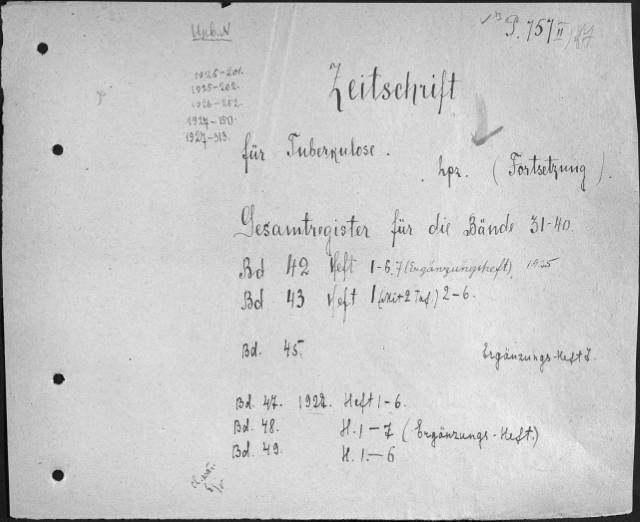 P. 757 II
1925-201.
1925-202.
1926-252.
1927-150.
1927-313.
Zeitschrift
für Tuberkulose.
hpz. (Fortsetzung).
Gesamtregister für die Bände 31-40.
Bd 42 Heft 1-6,7 (Ergänzungsheft) 1925
Bd 43 Heft 1 (mit 2 Taf.) 2-6.
Bd. 45. Ergänzungs-Heft
Bd. 47. 1927. Heft 1-6.
Bd. 48. H. 1-7 (Ergänzungs-Heft.)
Bd. 49. H. 1.-6